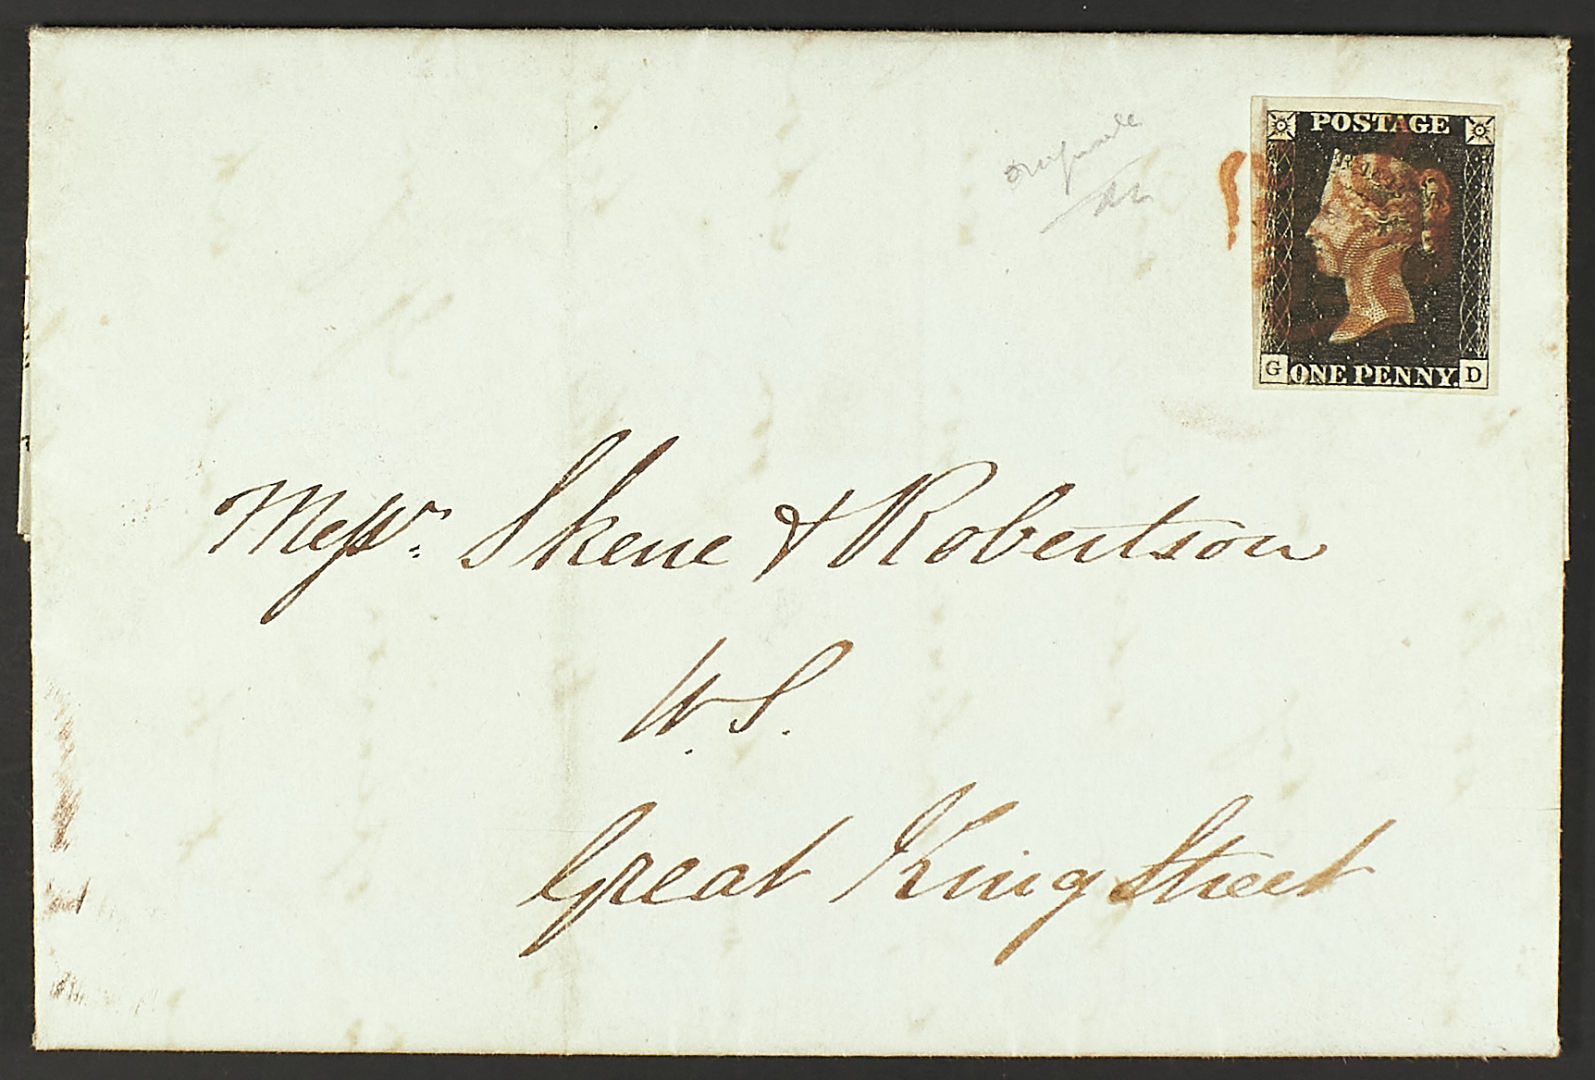 originale
POSTAGE
G ONE PENNY. D
Messrs. Skene & Robertson
W.S.
Great King Street